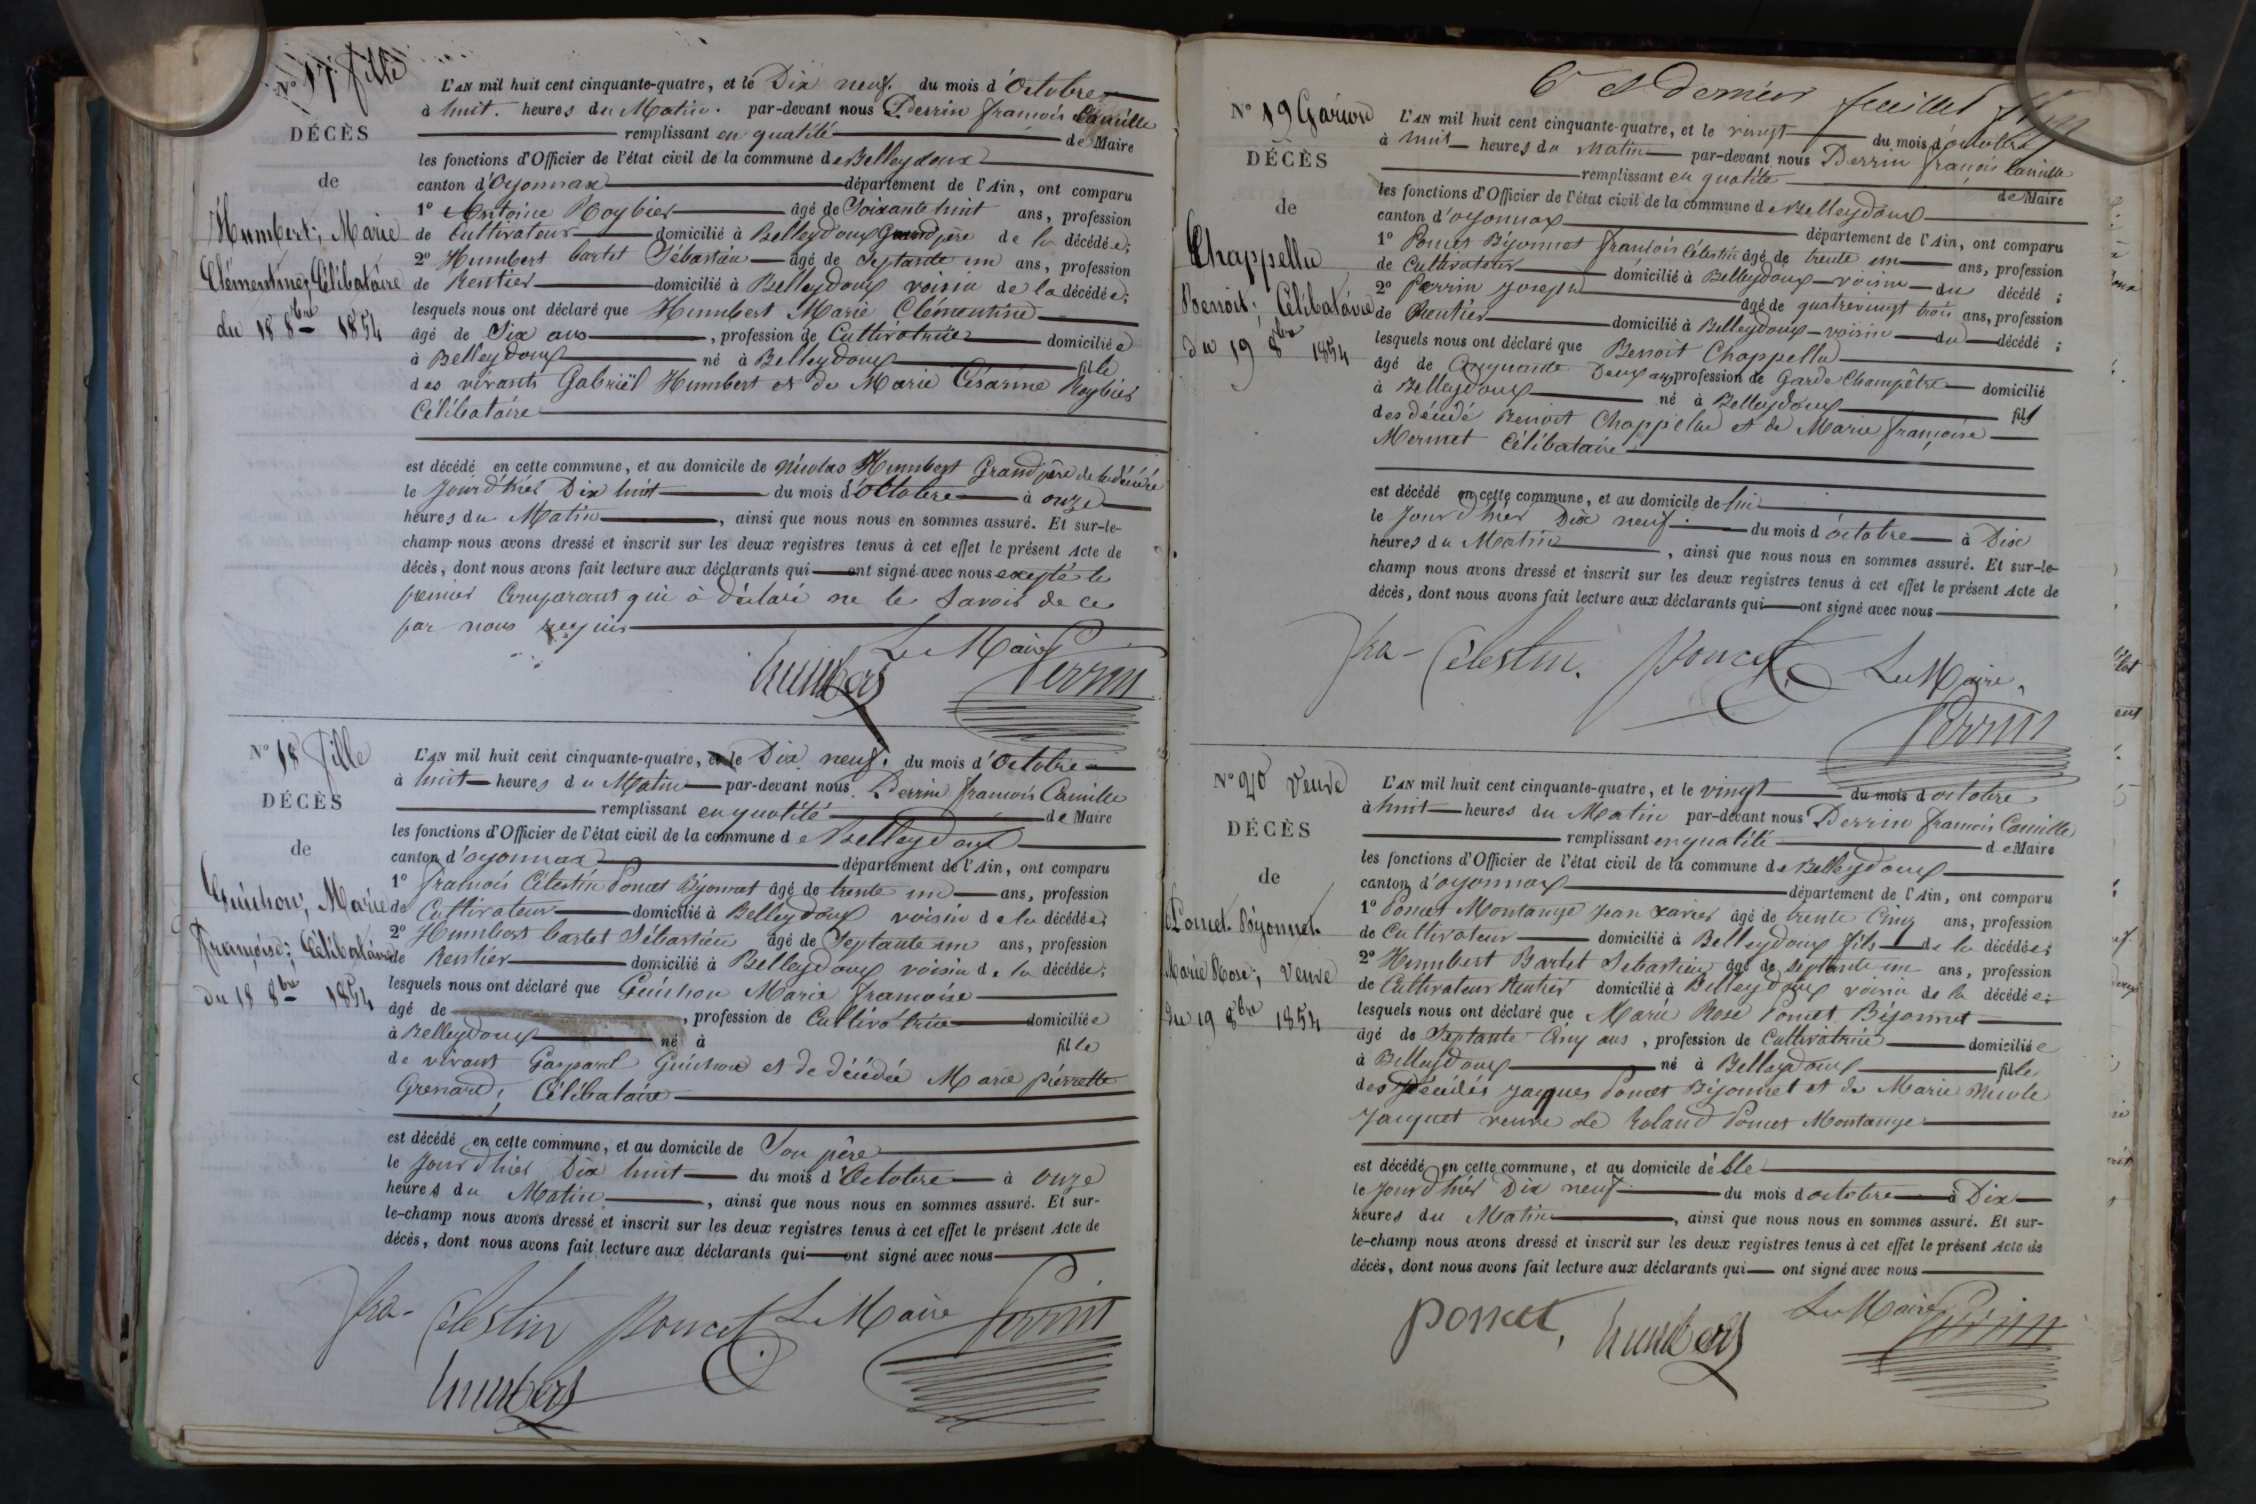 N° 17 fille
DÉCÈS
de
Humbert, Marie
Clémentine, Célibataire
du 18 8bre 1854
L'AN mil huit cent cinquante-quatre, et le Dix neuf. du mois d'Octobre
à huit. heures du Matin. par-devant nous Perrin françois Camille
remplissant en qualité de Maire
les fonctions d'Officier de l'état civil de la commune de Belleydoux
canton d'Oyonnax département de l'Ain, ont comparu
1° Antoine Roybier âgé de Soixante huit ans, profession
de Cultivateur domicilié à Belleydoux Grand père de la décédée;
2° Humbert bartet Sébastien âgé de Septante un ans, profession
de Rentier domicilié à Belleydoux voisin de la décédée;
lesquels nous ont déclaré que Humbert Marie Clémentine
âgé de Six ans, profession de Cultivatrice domiciliée
à Belleydoux né à Belleydoux fille
des vivants Gabriël Humbert et de Marie Césarine Roybier
Célibataire
est décédé en cette commune, et au domicile de Nicolas Humbert Grand père de la décédée
le Jour d'hier Dix huit du mois d'Octobre à onze
heures du Matin, ainsi que nous nous en sommes assuré. Et sur-le-
champ nous avons dressé et inscrit sur les deux registres tenus à cet effet le présent Acte de
décès, dont nous avons fait lecture aux déclarants qui ont signé avec nous excepté le
premier Comparant qui à déclaré ne le Savoir de ce
par nous requis
Le Maire
humbert Perrin
N° 18 fille
DÉCÈS
de
Guichon, Marie
Françoise; Célibataire
du 18 8bre 1854
L'AN mil huit cent cinquante-quatre, et le Dix neuf. du mois d'Octobre
à huit heures du Matin par-devant nous Perrin françois Camille
remplissant en qualité de Maire
les fonctions d'Officier de l'état civil de la commune de Belleydoux
canton d'oyonnax département de l'Ain, ont comparu
1° françois Célestin Poncet Bijonnet âgé de trente un ans, profession
de Cultivateur domicilié à Belleydoux voisin de la décédée;
2° Humbert bartet Sébastien âgé de Septante un ans, profession
de Rentier domicilié à Belleydoux voisin de la décédée;
lesquels nous ont déclaré que Guichon Marie françoise
âgé de , profession de Cultivatrice domiciliée
à Belleydoux né à fille
de vivant Gaspard Guichon et de décédée Marie pierrette
Grenard; Célibataire
est décédé en cette commune, et au domicile de Son père
le Jour d'hier Dix huit du mois d'Octobre à onze
heures du Matin, ainsi que nous nous en sommes assuré. Et sur-
le-champ nous avons dressé et inscrit sur les deux registres tenus à cet effet le présent Acte de
décès, dont nous avons fait lecture aux déclarants qui ont signé avec nous
fra- Célestin poncet Le Maire Perrin
humbert
6e et dernier feuillet
N° 19 Garçon
DÉCÈS
de
Chappellu
Benoit; Célibataire
du 19 8bre 1854
L'AN mil huit cent cinquante-quatre, et le vingt du mois d'octobre
à huit heures du Matin par-devant nous Perrin françois Camille
remplissant en qualité de Maire
les fonctions d'Officier de l'état civil de la commune de Belleydoux
canton d'oyonnax département de l'Ain, ont comparu
1° Poncet Bijonnet françois Célestin âgé de trente un ans, profession
de Cultivateur domicilié à Belleydoux voisin du décédé;
2° Perrin Joseph âgé de quatrevingt trois ans, profession
de Rentier domicilié à Belleydoux voisin du décédé;
lesquels nous ont déclaré que Benoit Chappellu
âgé de Cinquante Deux ans, profession de Garde Champêtre domicilié
à Belleydoux né à Belleydoux fils
des décédé Benoit Chappellu et de Marie françoise
Mermet Célibataire
est décédé en cette commune, et au domicile de lui
le Jour d'hier Dix neuf du mois d'octobre à Dix
heures du Matin, ainsi que nous nous en sommes assuré. Et sur-le-
champ nous avons dressé et inscrit sur les deux registres tenus à cet effet le présent Acte de
décès, dont nous avons fait lecture aux déclarants qui ont signé avec nous
fra- Célestin. poncet Le Maire,
Perrin
N° 20 Veuve
DÉCÈS
de
Poncet-Bijonnet.
Marie Rose; veuve
du 19 8bre 1854
L'AN mil huit cent cinquante-quatre, et le vingt du mois d'octobre
à huit heures du Matin par-devant nous Perrin françois Camille
remplissant en qualité de Maire
les fonctions d'Officier de l'état civil de la commune de Belleydoux
canton d'oyonnax département de l'Ain, ont comparu
1° Poncet Montange jean xavier âgé de trente Cinq ans, profession
de Cultivateur domicilié à Belleydoux fils de la décédée;
2° Humbert Bartet Sébastien âgé de septante un ans, profession
de Cultivateur Rentier domicilié à Belleydoux voisin de la décédée;
lesquels nous ont déclaré que Marie Rose Poncet Bijonnet
âgé de Septante Cinq ans, profession de Cultivatrice domiciliée
à Belleydoux né à Belleydoux fille
des décédés jacques Poncet Bijonnet et de Marie Nicole
jacquet veuve de Roland Poncet Montange
est décédé en cette commune, et au domicile d'Elle
le jour d'hier Dix neuf du mois d'octobre à Dix
heures du Matin, ainsi que nous nous en sommes assuré. Et sur-
le-champ nous avons dressé et inscrit sur les deux registres tenus à cet effet le présent Acte de
décès, dont nous avons fait lecture aux déclarants qui ont signé avec nous
poncet, humbert Le Maire Perrin